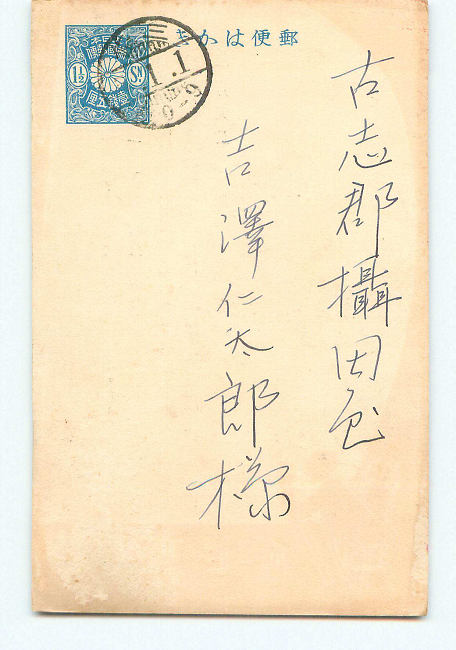 郵便はかき
1½ Sn
1.1
古志郡攝田屯
吉澤仁太郎様